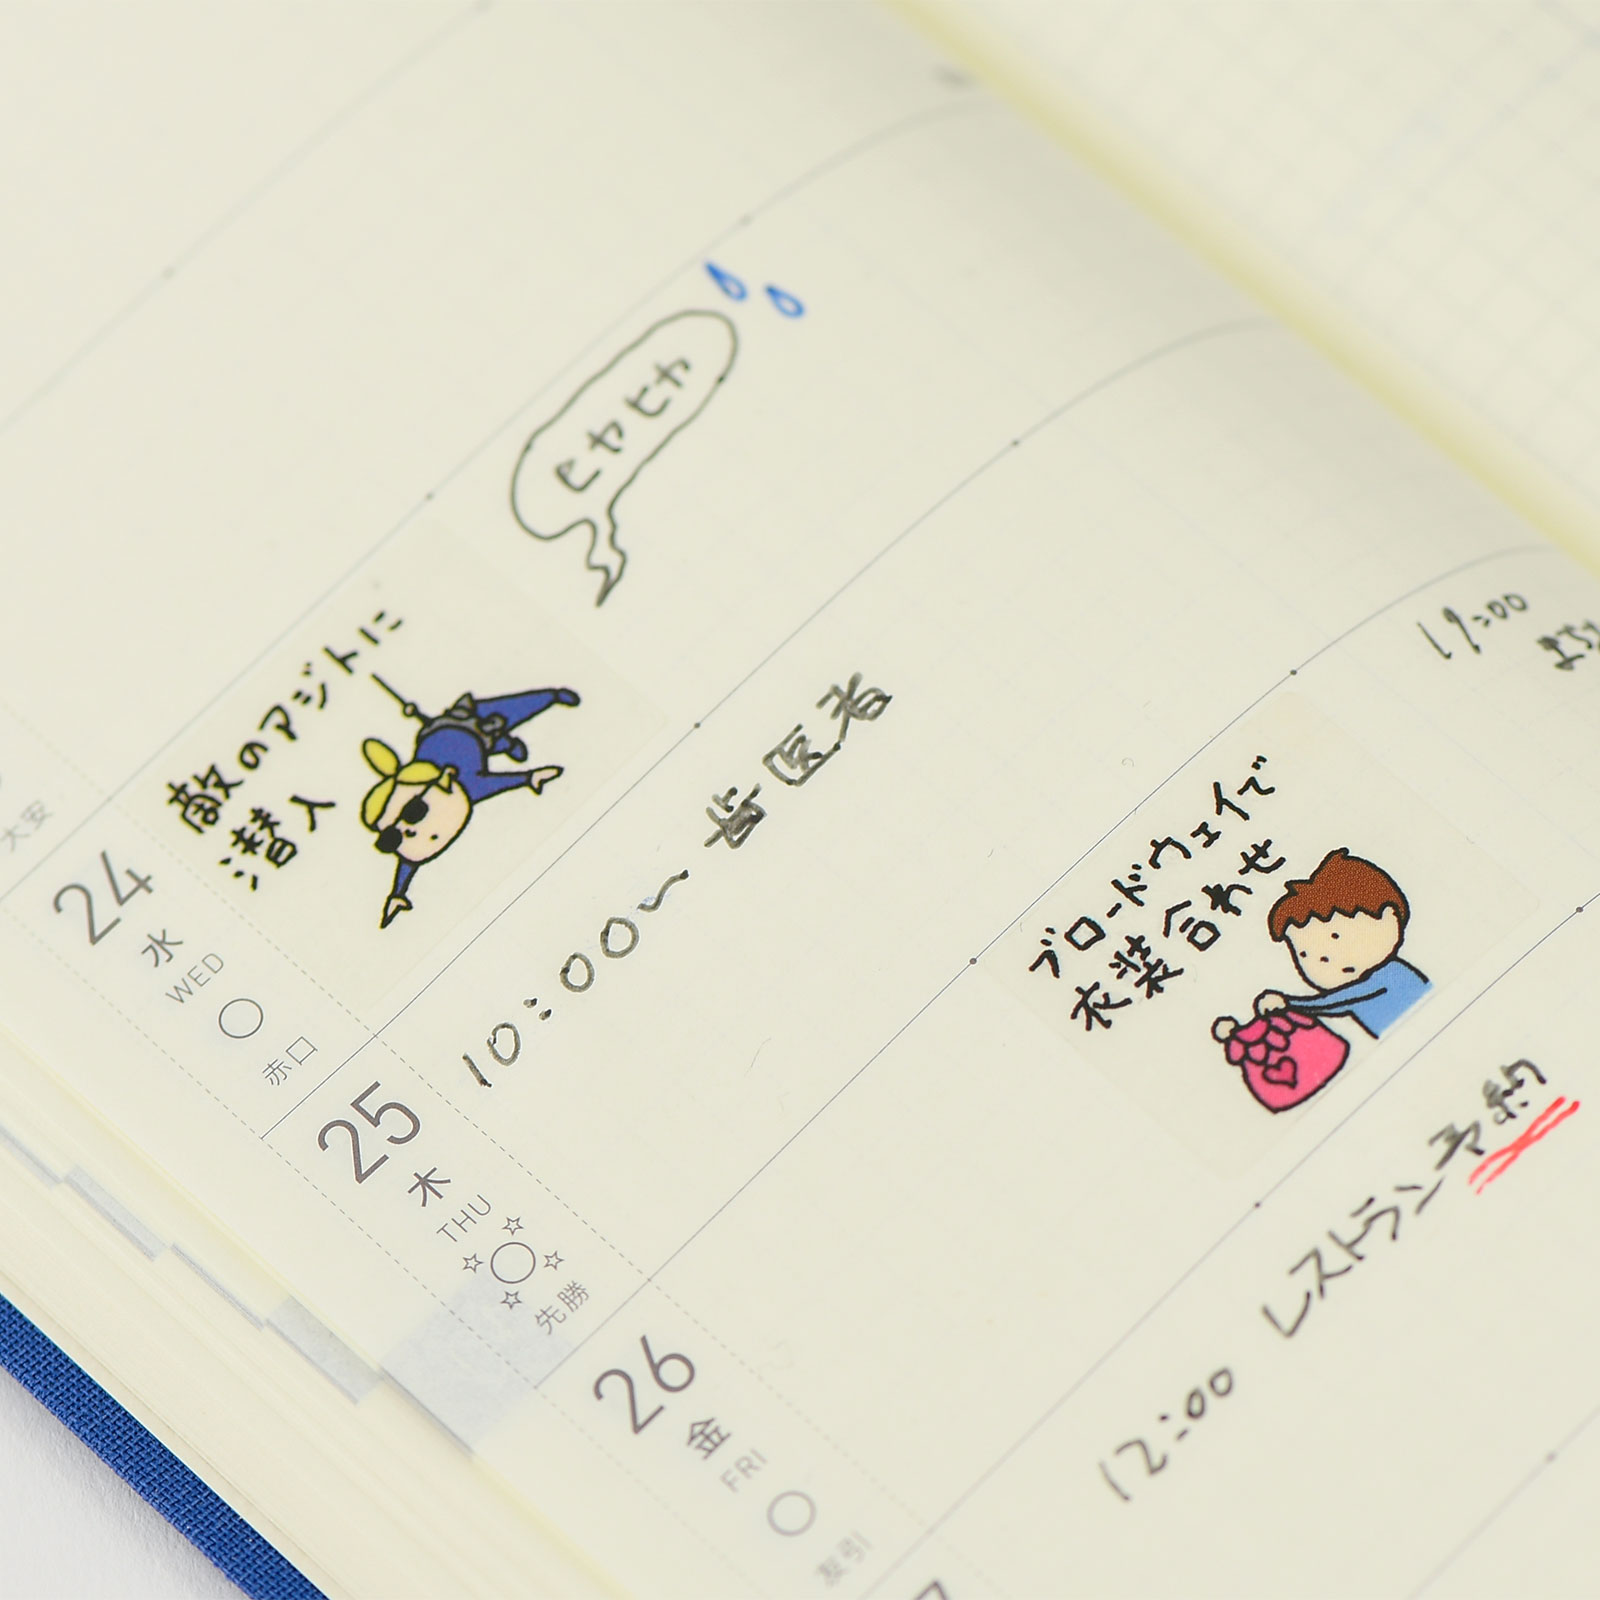 大安
24
水
WED
赤口
敵のアジトに
潜入
ヒヤヒヤ
25
木
THU
先勝
10:00〜歯医者
ブロードウェイで
衣装合わせ
19:00
26
金
FRI
友引
12:00 レストラン予約